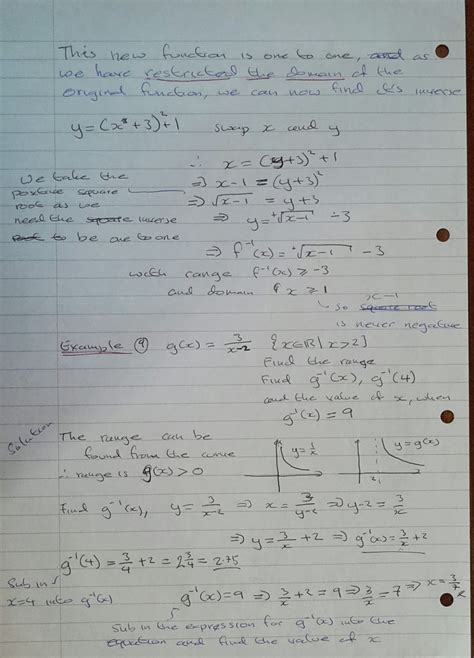 This new function is one to one, and as
we have restricted the domain of the
original function, we can now find its inverse
y = (x + 3)² + 1 swap x and y
∴ x = (y+3)² + 1
We take the
positive square
root as we
need the square inverse
to be one to one
⇒ x - 1 = (y+3)²
⇒ √x-1 = y+3
⇒ y = ⁺√x-1 - 3
⇒ f⁻¹(x) = ⁺√x-1 - 3
with range f⁻¹(x) ≥ -3
and domain x ≥ 1
so square root x-1
is never negative
Example 9 g(x) = 3/(x-2) {x∈ℝ | x>2}
Find the range
Find g⁻¹(x), g⁻¹(4)
and the value of x, when
g⁻¹(x) = 9
Solution
The range can be
found from the curve
∴ range is g(x) > 0
y = 1/x
y = g(x)
2
Find g⁻¹(x), y = 3/(x-2) ⇒ x = 3/(y-2) ⇒ y-2 = 3/x
⇒ y = 3/x + 2 ⇒ g⁻¹(x) = 3/x + 2
g⁻¹(4) = 3/4 + 2 = 2 3/4 = 2.75
Sub in
x=4 into g⁻¹(x)
g⁻¹(x) = 9 ⇒ 3/x + 2 = 9 ⇒ 3/x = 7 ⇒ x = 3/7
Sub in the expression for g⁻¹(x) into the
equation and find the value of x